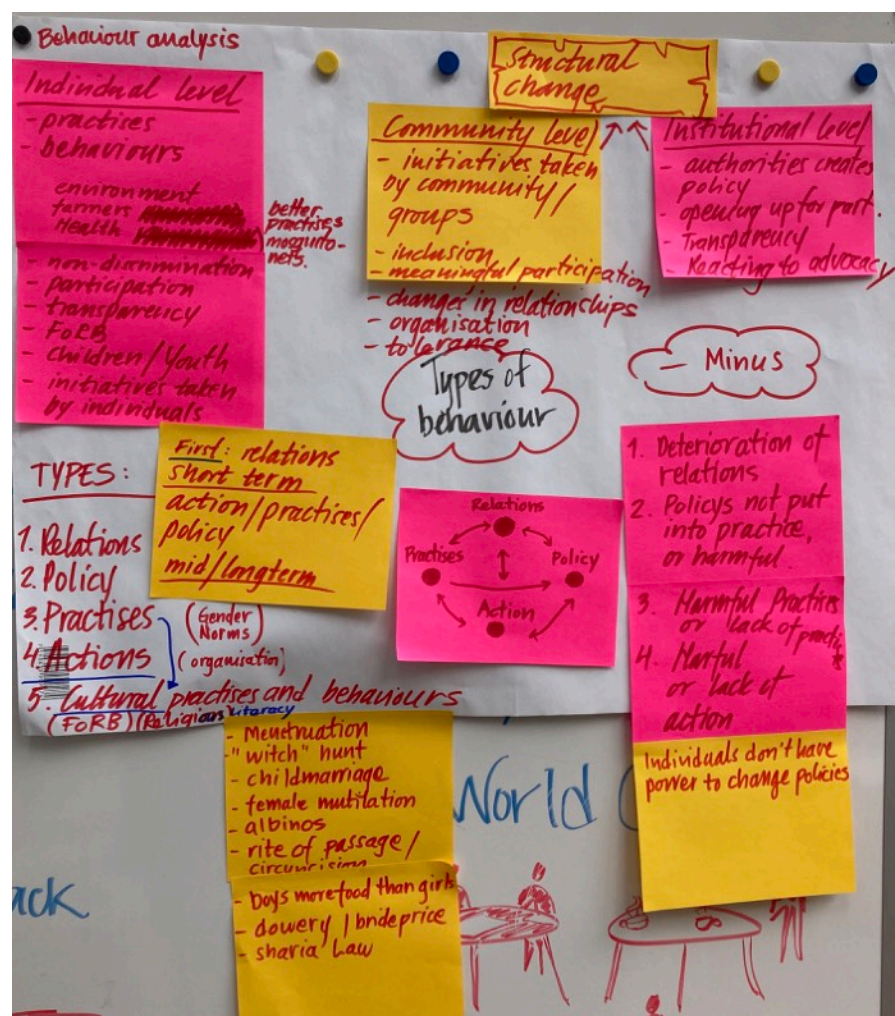 Behaviour analysis
Individual level
- practises
- behaviours
environment
farmers
Health
better
practises
mosquito-
nets.
- non-discrimination
- participation
- transparency
- FoRB
- children/Youth
- initiatives taken
by individuals
Structural
change
Community level
- initiatives taken
by community/
groups
- inclusion
- meaningful participation
- changer in relationships
- organisation
- tolerance
Institutional level
- authorities creates
policy
- opening up for part.
- Transparency
- Reacting to advocacy
Types of
behaviour
- Minus
TYPES:
1. Relations
2. Policy
3. Practises (Gender
Norms)
4. Actions (organisation)
5. Cultural practises and behaviours
(FoRB) (Religious literacy
First: relations
short term
action/practises/
policy
mid/longterm
Relations
Practises
Policy
Action
1. Deterioration of
relations
2. Policys not put
into practice,
or harmful.
3. Harmful Practises
or lack of
4. Harful
or lack of
action
Individuals don't have
power to change policies
- Menstruation
- "witch" hunt
- childmarriage
- female mutilation
- albinos
- rite of passage/
circumcision
- boys more food than girls
- dowery / brideprice
- sharia Law
World
ack